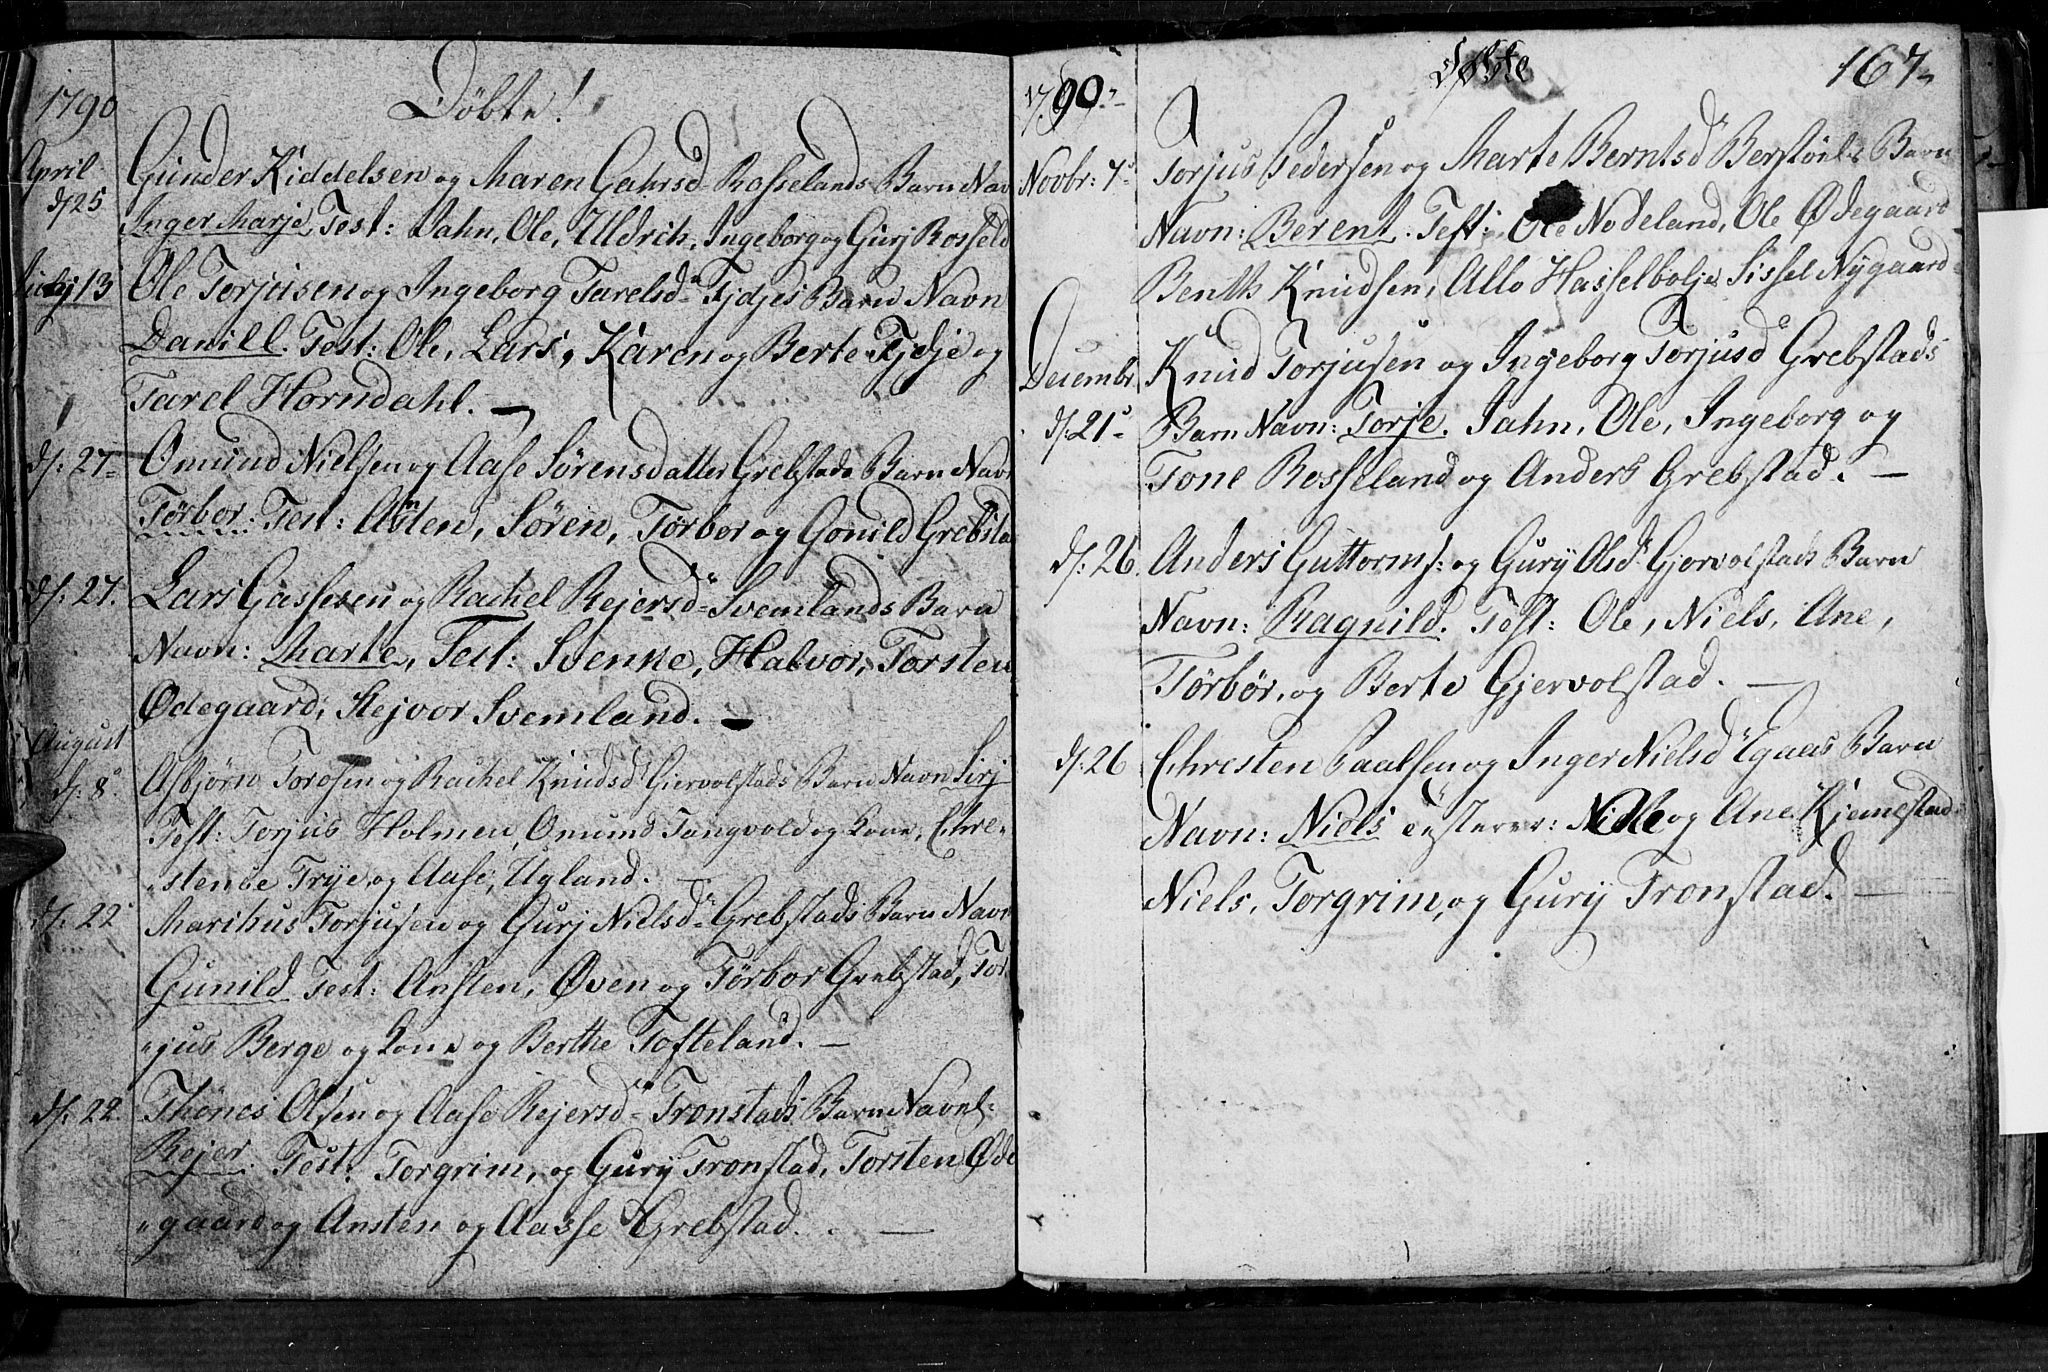 1790
Döbte!
April
d 25
Gunder Kiddelsen og Maren Gahrsd Rosselands Barn Nav
Inger Marje, Test: Jahn, Ole, Uldrik, Ingeborg og Gurj Rosseld
July 13
Ole Torjusen og Ingeborg Tarelsd Fjdjes Barn Navn
Daniell. Test: Ole, Lars, Karen og Berte Fjdje og
Tarel Horndahl. —
d: 27
Omund Nielsen og Aase Sörensdatter Grebstads Barn Navn
Törbor: Test: Ansten, Sören, Törbor og Gonild Grebsta
d: 27.
Lars Gassesen og Rachel Rejersd Svemlands Barn
Navn: Marte, Test: Svenke, Halvor, Torsten
Ødegaard, Stejvor Svemland. —
August
d: 8
Asbjörn Torosen og Rachel Knudsd Giervolstads Barn Navn Sirj
Test: Torjus Holmen, Omund Tangvold og kone, Chre-
"stence Trye og Aase, Ugland. —
d: 22
Marthus Torjusen og Gurj Nielsd Grebstads Barn Navn
Gunild Test: Ansten, Øven og Törbor Grebstad, Tor
"jus Berge og kone og Berthe Tofteland. —
d: 22
Thönes Olsen og Aase Rejersd Tronstads Barn Navnl:
Rejer. Test. Torgrim, og Gury Tronstad, Torsten Øde
"gaard og Ansten og Aasse Grebstad. . —
1790
Döbte
167
Novbr: 7
Torjus Pedersen og Marte Berntsd Berstöels Barn
Navn: Berent. Test: Ole Nodeland, Ole Ødegaard
Benth Knudsen, Allo Hasselbolje Sissel Nygaard
Decembr
d: 21
Knud Torjusen og Ingeborg Torjusd Grebstads
Barn Navn: Torje. Jahn, Ole, Ingeborg og
Tone Rosseland og Anders Grebstad. —
d: 26.
Anders Guttorms: og Gury Olsd Gjervolstads Barn
Navn: Ragnild. Test: Ole, Niels, Ane,
Törbör, og Berte Gjervolstad. —
d: 26
Chresten Paalsen og Inger Nielsd Egaas Barn
Navn: Niels Ole og Ane Kjemestad
Niels, Torgrim, og Gury Tronstad. —